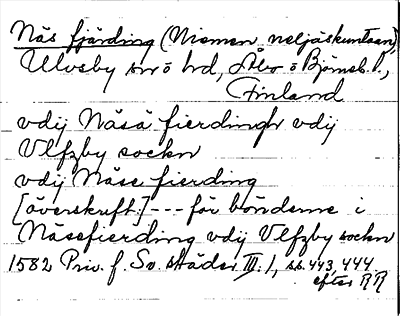 Näs fjärding (Niemen neljäskuntaan),
Ulvsby sn o hd, Åbo o Björneb. l.,
Finland
vdij Näsä fierdingh vdij
Vlfzby sockn
vdij Näse fierding
[överskrift] --- för bönderne i
Näsefierding vdij Vlfzby sockn
1582 Priv. f. Sv. städer III:1, ss. 443, 444.
efter RR